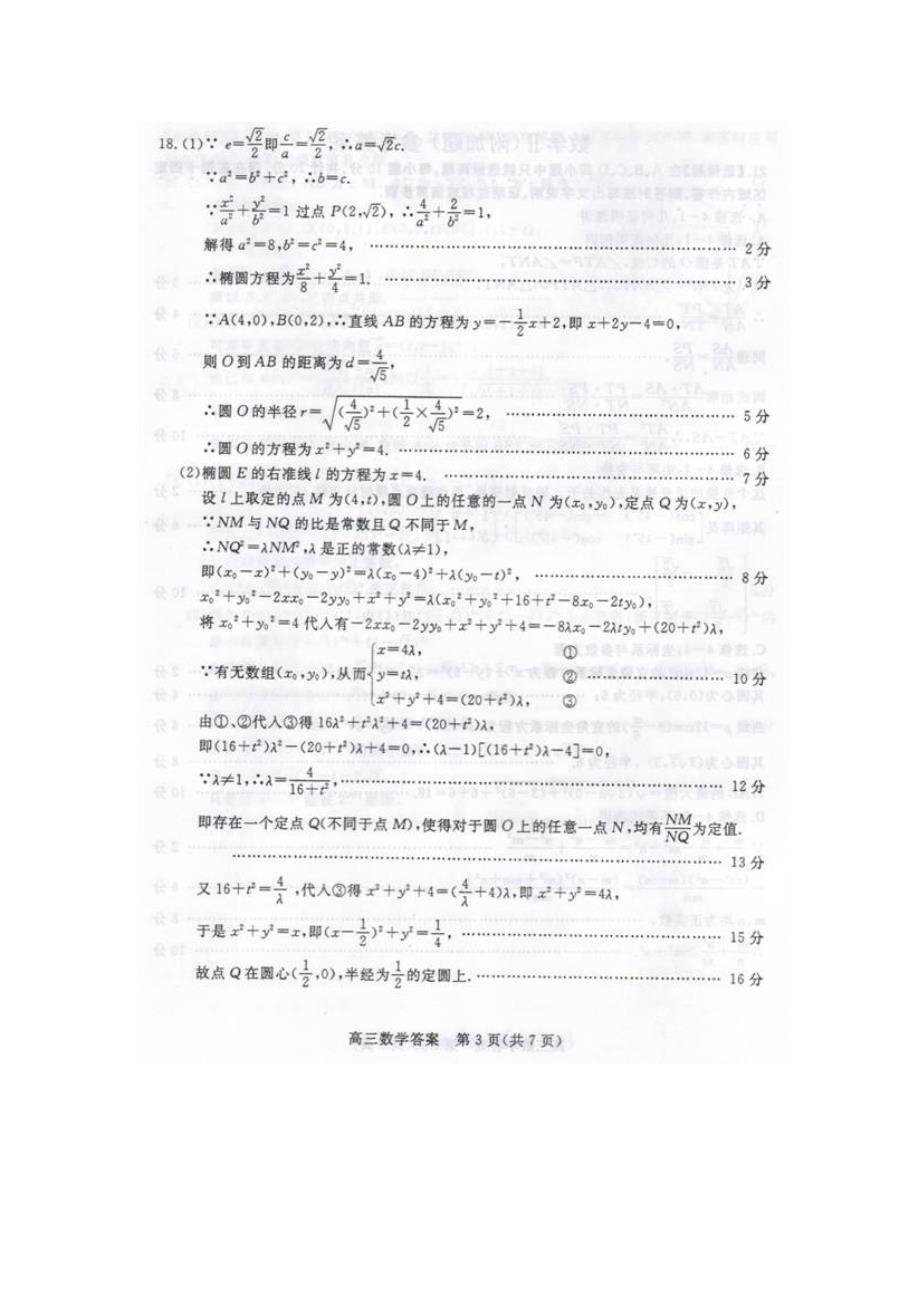 18.(1)∵ e=√2/2即c/a=√2/2,∴a=√2c.
∵a²=b²+c²,∴b=c.
∵x²/a²+y²/b²=1 过点 P(2,√2),∴4/a²+2/b²=1,
解得 a²=8,b²=c²=4, …… 2 分
∴椭圆方程为x²/8+y²/4=1. …… 3 分
∵A(4,0),B(0,2),∴直线 AB 的方程为 y=-1/2x+2,即 x+2y-4=0,
则 O 到 AB 的距离为 d=4/√5,
∴圆 O 的半径 r=√((4/√5)²+(1/2×4/√5)²)=2, …… 5 分
∴圆 O 的方程为 x²+y²=4. …… 6 分
(2)椭圆 E 的右准线 l 的方程为 x=4. …… 7 分
设 l 上取定的点 M 为(4,t),圆 O 上的任意的一点 N 为(x₀,y₀),定点 Q 为(x,y),
∵NM 与 NQ 的比是常数且 Q 不同于 M,
∴NQ²=λNM²,λ 是正的常数(λ≠1),
即(x₀-x)²+(y₀-y)²=λ(x₀-4)²+λ(y₀-t)², …… 8 分
x₀²+y₀²-2xx₀-2yy₀+x²+y²=λ(x₀²+y₀²+16+t²-8x₀-2ty₀),
将 x₀²+y₀²=4 代人有-2xx₀-2yy₀+x²+y²+4=-8λx₀-2λty₀+(20+t²)λ,
x=4λ, ①
∵有无数组(x₀,y₀),从而{y=tλ, ② …… 10 分
x²+y²+4=(20+t²)λ, ③
由①、②代人③得 16λ²+t²λ²+4=(20+t²)λ,
即(16+t²)λ²-(20+t²)λ+4=0,∴(λ-1)[(16+t²)λ-4]=0,
∵λ≠1,∴λ=4/(16+t²), …… 12 分
即存在一个定点 Q(不同于点 M),使得对于圆 O 上的任意一点 N,均有NM/NQ为定值.
…… 13 分
又 16+t²=4/λ,代人③得 x²+y²+4=(4/λ+4)λ,即 x²+y²=4λ,
于是 x²+y²=x,即(x-1/2)²+y²=1/4, …… 15 分
故点 Q 在圆心(1/2,0),半经为1/2的定圆上. …… 16 分
高三数学答案 第 3 页(共 7 页)